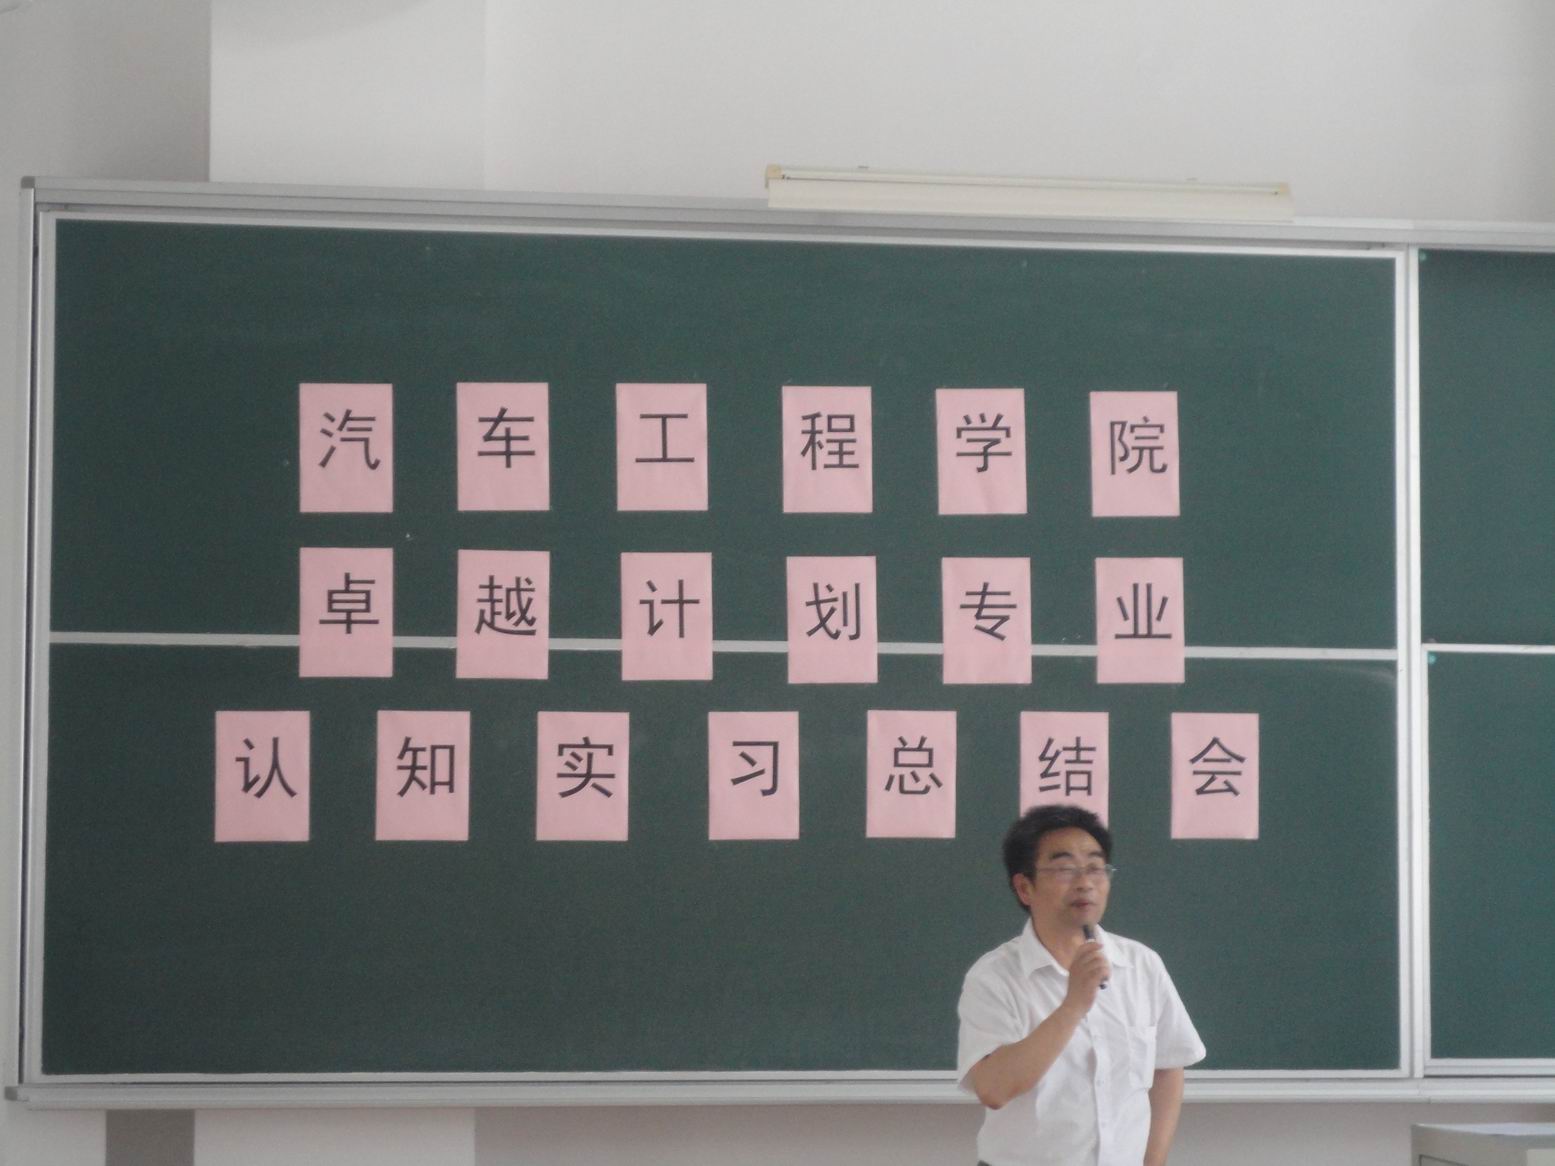 汽车工程学院
卓越计划专业
认知实习总结会